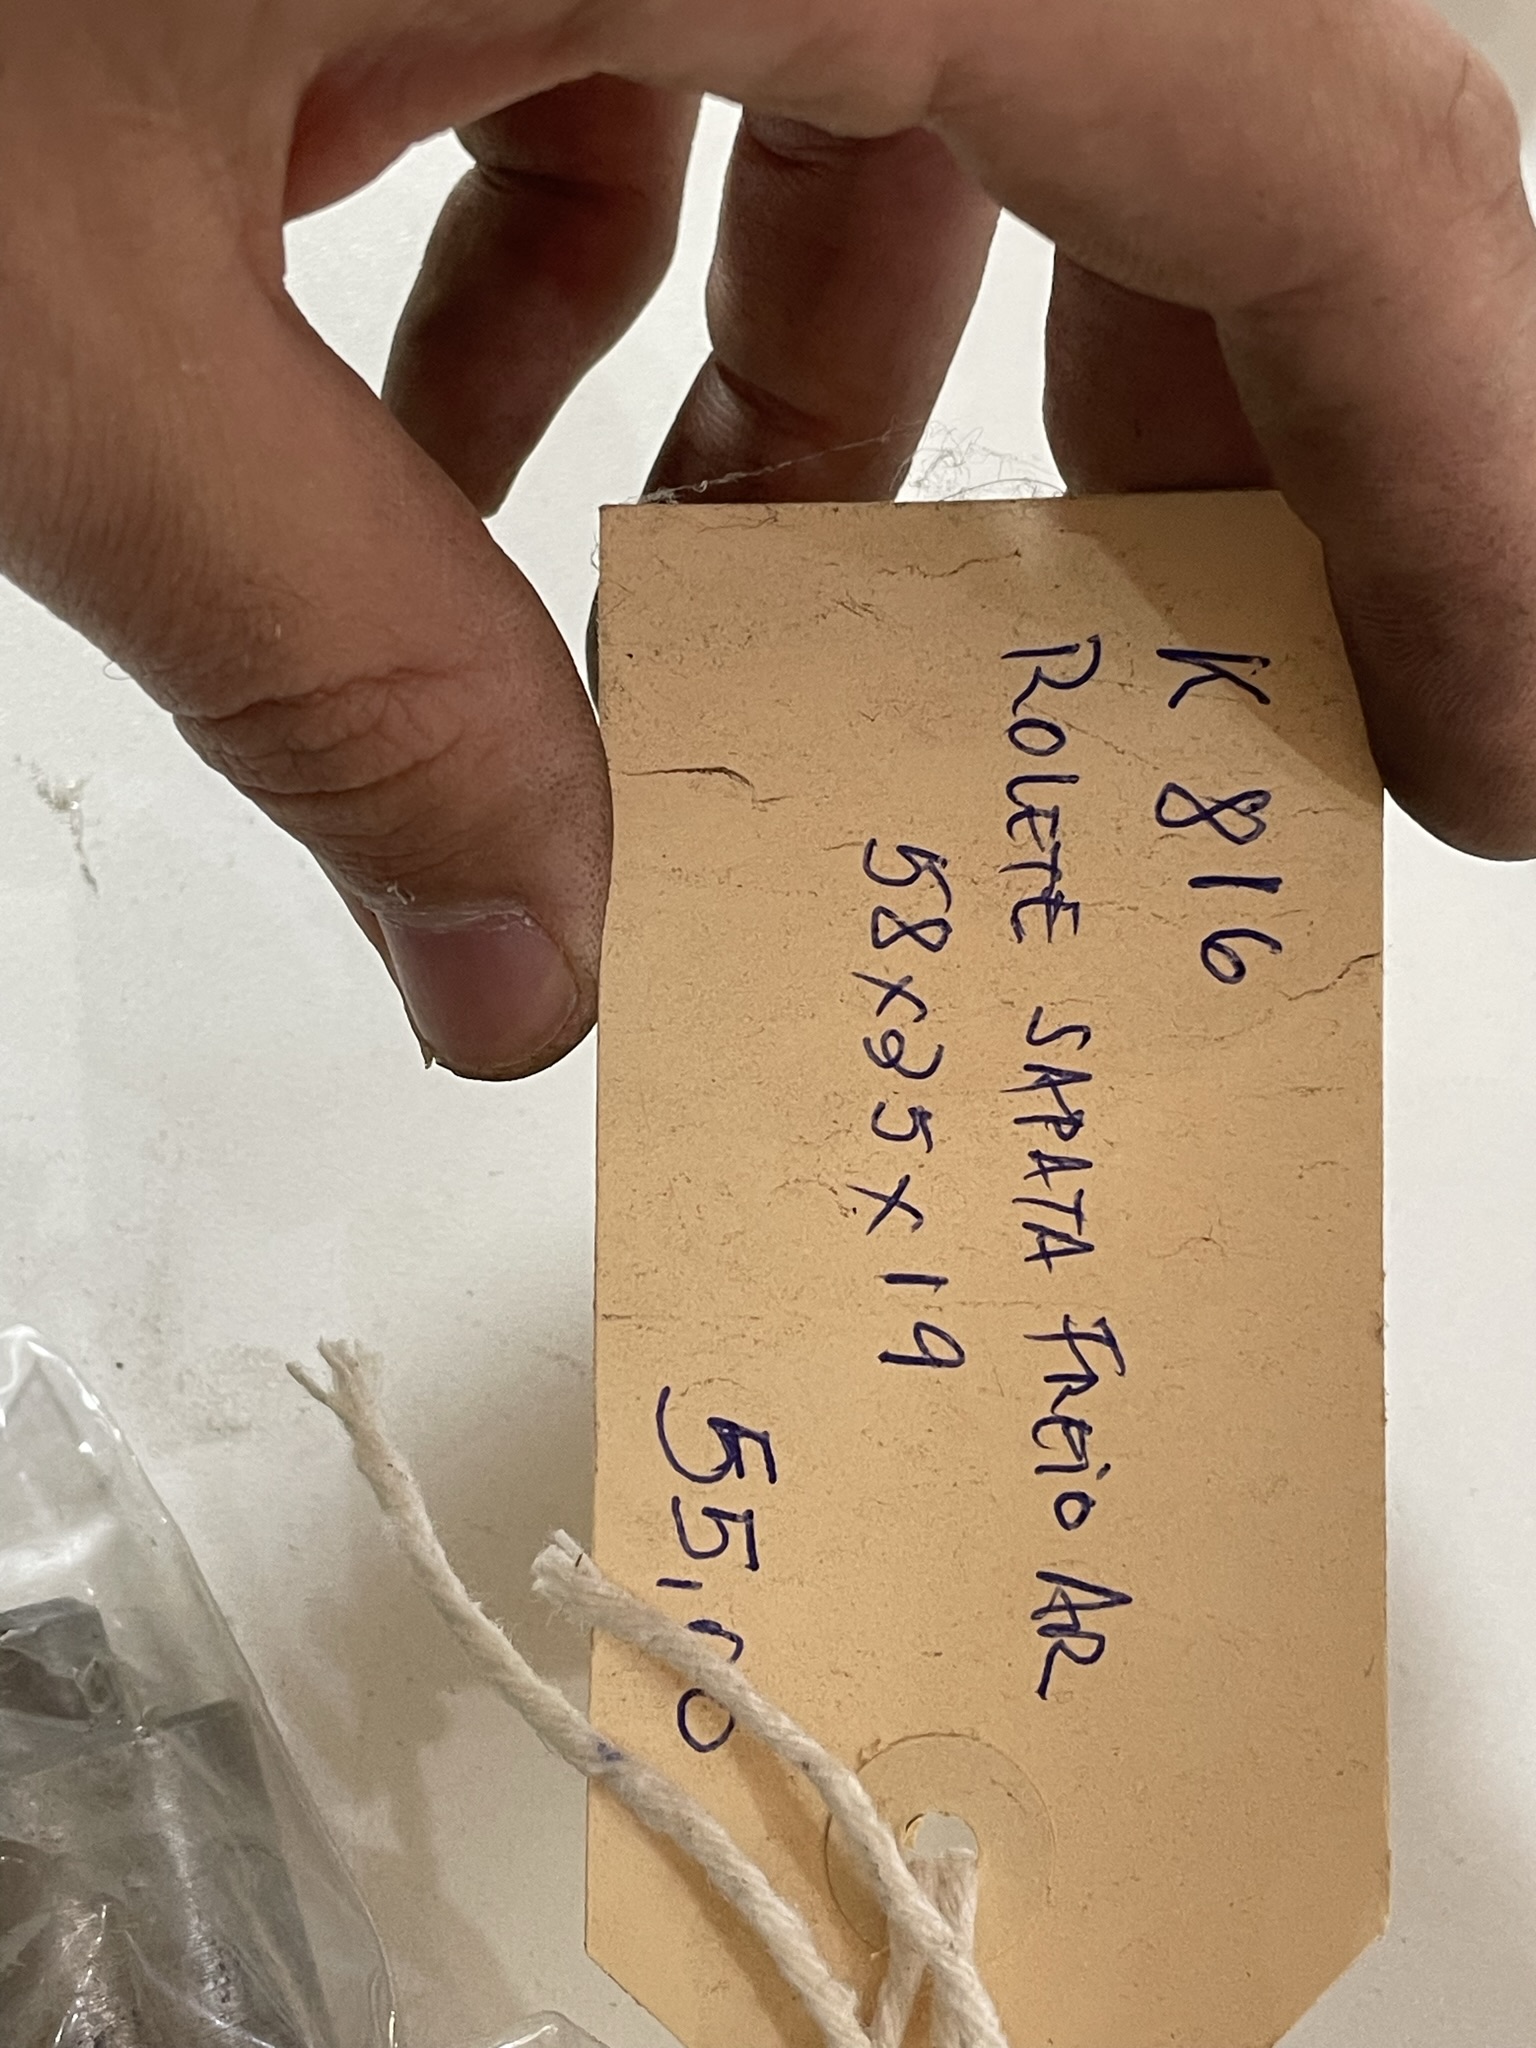 K 816
ROLETE SAPATA FREiO AR
58x25x19
55,00